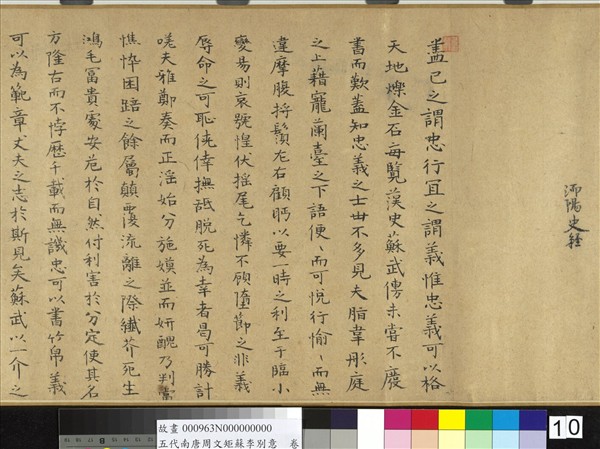 沔陽史經
盡己之謂忠行宜之謂義惟忠義可以格
天地爍金石每覽漢史蘇武傳未嘗不廢
書而歎蓋知忠義之士世不多見夫脂韋彤庭
之上藉寵蘭臺之下語便〻而可悅行愉〻而無
違摩腹捋鬚左右顧眄以要一時之利至于臨小
變易則哀號惶伏搖尾乞憐不顧墮節之非義
辱命之可恥僥倖撫詆脫死為幸者曷可勝計
嗟夫雅鄭奏而正淫始分施嫫並而妍醜乃判當
憔悴困踣之餘屬顛覆流離之際纖芥死生
鴻毛冨貴處安危於自然付利害於分定使其名
方隆古而不悖歷千載而無譏忠可以書竹帛義
可以為範章丈夫之志於斯見矣蘇武以一介之
故畫 000963N000000000
五代南唐周文矩蘇李別意 卷
10